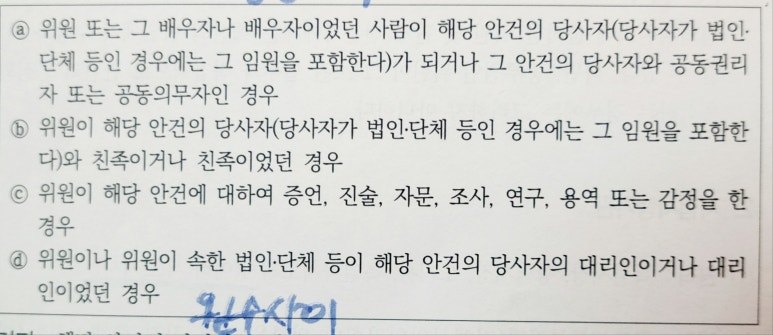 ⓐ 위원 또는 그 배우자나 배우자이었던 사람이 해당 안건의 당사자(당사자가 법인·
단체 등인 경우에는 그 임원을 포함한다)가 되거나 그 안건의 당사자와 공동권리
자 또는 공동의무자인 경우
ⓑ 위원이 해당 안건의 당사자(당사자가 법인·단체 등인 경우에는 그 임원을 포함한
다)와 친족이거나 친족이었던 경우
ⓒ 위원이 해당 안건에 대하여 증언, 진술, 자문, 조사, 연구, 용역 또는 감정을 한
경우
ⓓ 위원이나 위원이 속한 법인·단체 등이 해당 안건의 당사자의 대리인이거나 대리
인이었던 경우